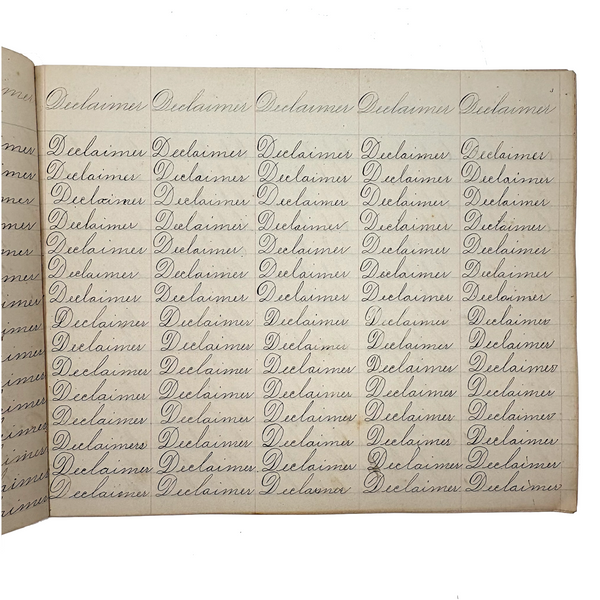 Declaimer Declaimer Declaimer Declaimer Declaimer
Declaimer Declaimer Declaimer Declaimer Declaimer
Declaimer Declaimer Declaimer Declaimer Declaimer
Declaimer Declaimer Declaimer Declaimer Declaimer
Declaimer Declaimer Declaimer Declaimer Declaimer
Declaimer Declaimer Declaimer Declaimer Declaimer
Declaimer Declaimer Declaimer Declaimer Declaimer
Declaimer Declaimer Declaimer Declaimer Declaimer
Declaimer Declaimer Declaimer Declaimer Declaimer
Declaimer Declaimer Declaimer Declaimer Declaimer
Declaimer Declaimer Declaimer Declaimer Declaimer
Declaimer Declaimer Declaimer Declaimer Declaimer
Declaimer Declaimer Declaimer Declaimer Declaimer
Declaimers Declaimer Declaimer Declaimer Declaimer
Declaimer Declaimer Declaimer Declaimer Declaimer
Declaimer Declaimer Declaimer Declaimer Declaimer